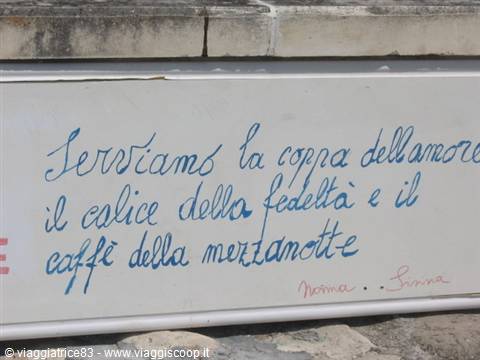 Serviamo la coppa dellamore
il calice della fedeltà e il
caffè della mezzanotte
E
© viaggiatrice83 - www.viaggiscoop.it